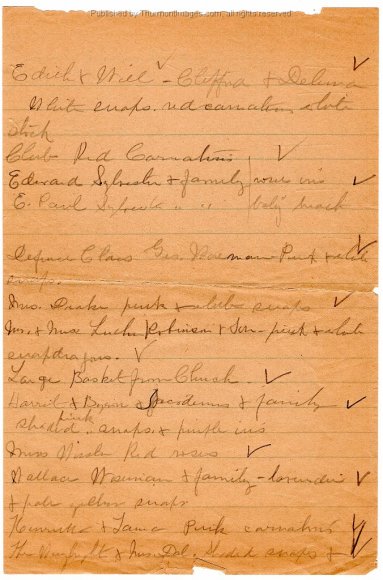 Published by Thurmontimages.com, all rights reserved
Edith & Will - Clifford & 
White snaps. red carnations white
stock
Club Red Carnations
Edward Sylvester & family } roses iris
E. Paul Sylvester " " } baby breath
Class Geo. Pink & white
snaps.
Mrs. Drake pink & white snaps
Mr. & Mrs. Luther Robinson & Son - pink & white
snapdragons.
Large Basket from Church
Harriet & Byron & family
shaded pink snaps & purple iris
Miss Red roses
Wallace & family - lavender
& pale yellow snaps
& Pink carnations
& Mrs. shaded snaps &